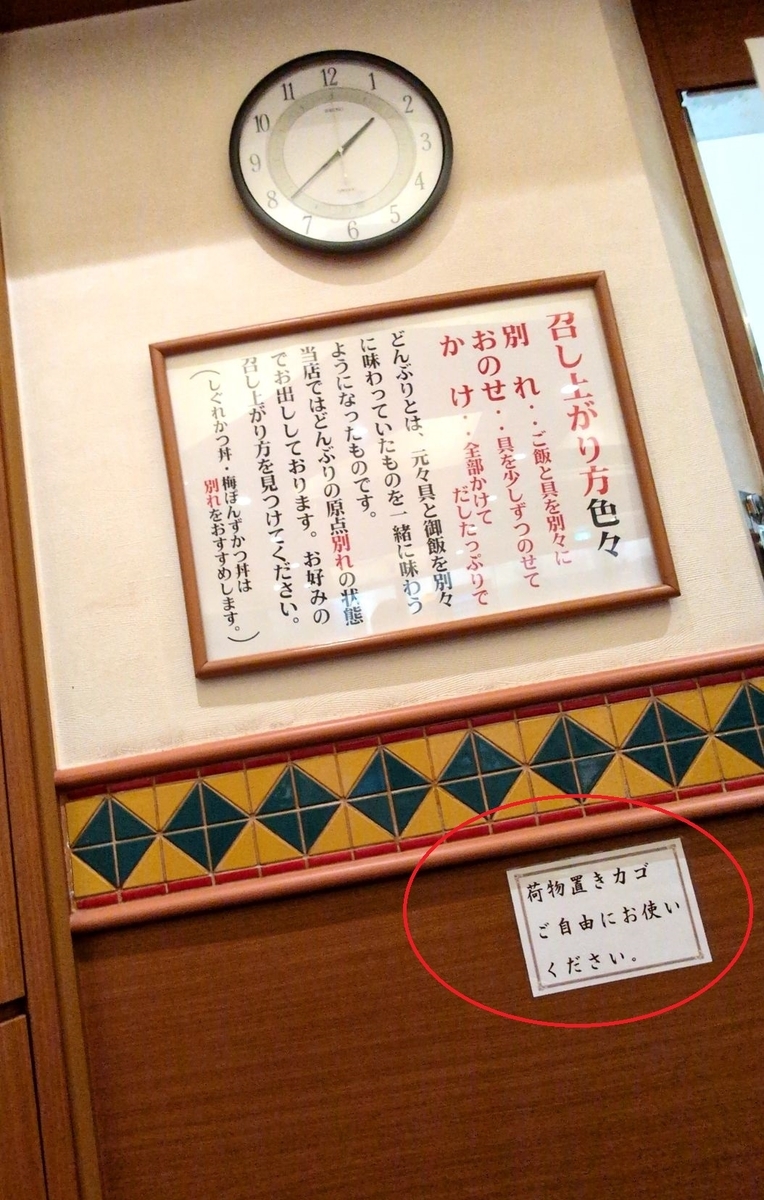 12
1
2
3
4
5
6
7
8
9
10
11
SEIKO
召し上がり方色々
別れ・・ご飯と具を別々に
おのせ・・具を少しずつのせて
かけ・・全部かけて
だしたっぷりで
どんぶりとは、元々具と御飯を別々
に味わっていたものを一緒に味わう
ようになったものです。
当店ではどんぶりの原点別れの状態
でお出ししております。お好みの
召し上がり方を見つけてください。
(しぐれかつ丼・梅ぽんずかつ丼は
別れをおすすめします。)
荷物置きカゴ
ご自由にお使い
ください。